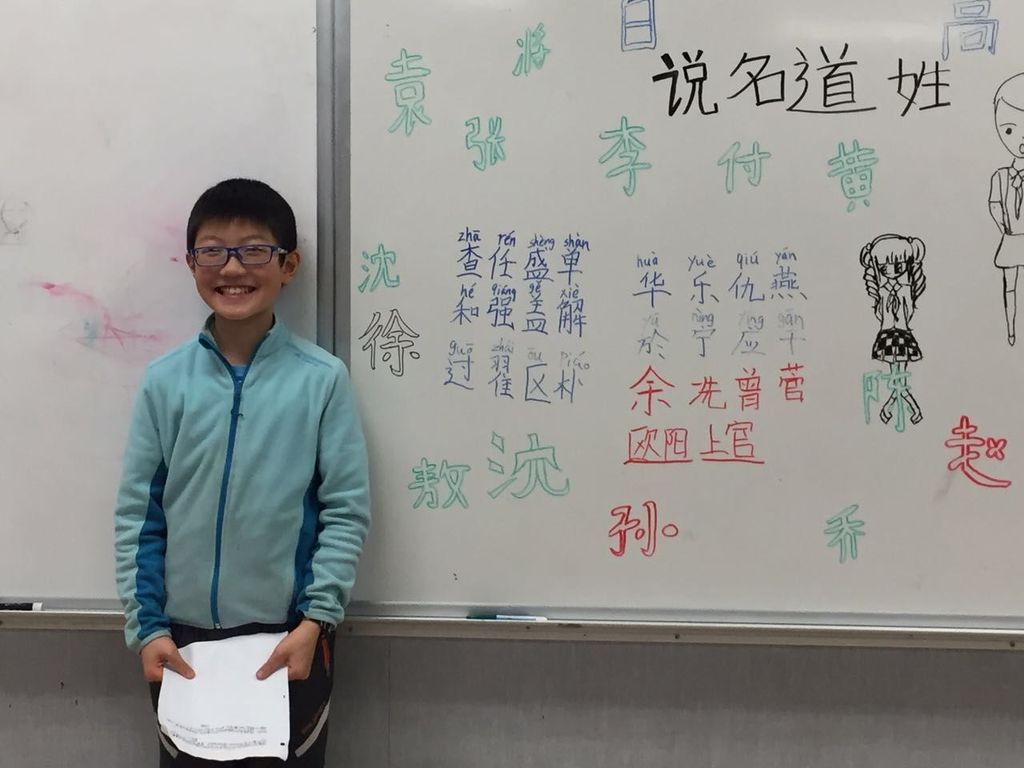 日
高
将
说名道姓
袁
张
李
付
黄
沈
徐
zhā rén shèng shàn
查任盛单
hé qiáng gě xiè
和强盖解
guō zhái ōu piáo
过翟区朴
huà yuè qiú yān
华乐仇燕
yū nìng yīng gān
於宁应干
余冼曾菅
欧阳上官
陈
赵
敖
沈
孙
乔